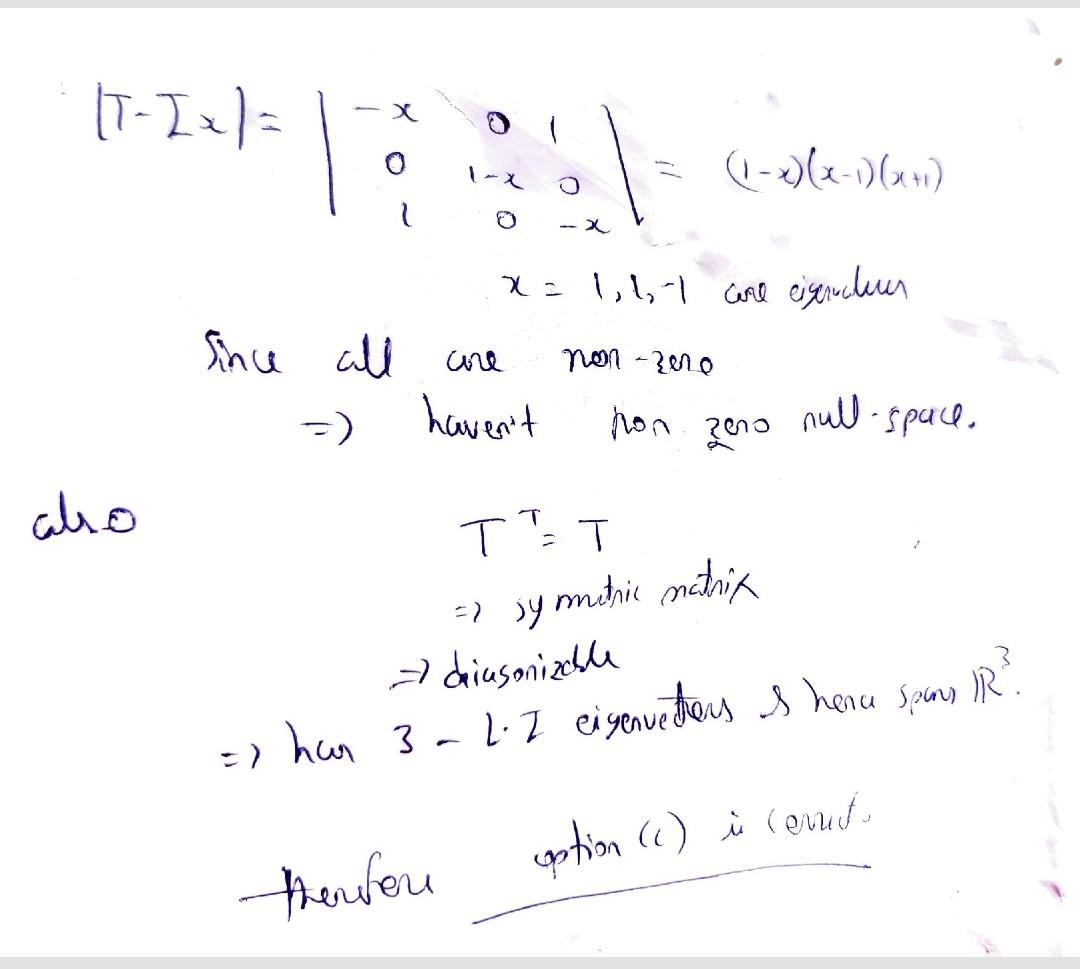 |T-Ix| = | -x 0 1 | = (1-x)(x-1)(x+1)
0 1-x 0
1 0 -x
x = 1, 1, -1 are eigenvalues
Since all are non-zero
=> haven't non zero null-space.
also T^T = T
=> symmetric matrix
=> diagonizable
=> has 3 - L.I eigenvectors & hence spans R^3.
therefore option (c) is correct.